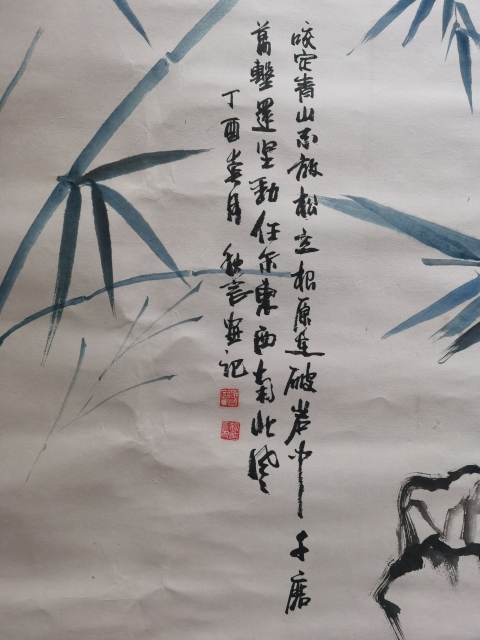 咬定青山不放松立根原在破岩中千磨
萬擊還坚勁任尔東西南北風
丁酉春月秋言畫记